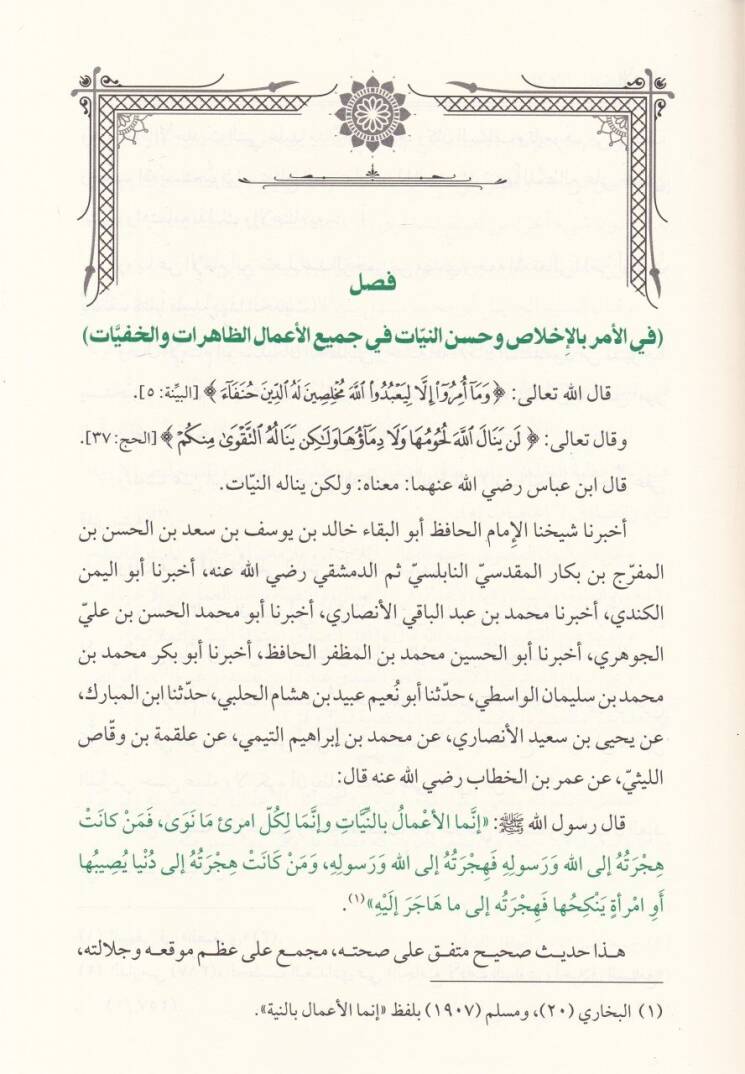 فصل
(في الأمر بالإخلاص وحسن النيّات في جميع الأعمال الظاهرات والخفيَّات)
قال الله تعالى: ﴿وَمَآ أُمِرُوٓاْ إِلَّا لِيَعْبُدُواْ ٱللَّهَ مُخْلِصِينَ لَهُ ٱلدِّينَ حُنَفَآءَ﴾ [البيِّنة: ٥].
وقال تعالى: ﴿لَن يَنَالَ ٱللَّهَ لُحُومُهَا وَلَا دِمَآؤُهَا وَلَٰكِن يَنَالُهُ ٱلتَّقْوَىٰ مِنكُمْ﴾ [الحج: ٣٧].
قال ابن عباس رضي الله عنهما: معناه: ولكن يناله النيّات.
أخبرنا شيخنا الإمام الحافظ أبو البقاء خالد بن يوسف بن سعد بن الحسن بن
المفرّج بن بكار المقدسيّ النابلسيّ ثم الدمشقي رضي الله عنه، أخبرنا أبو اليمن
الكندي، أخبرنا محمد بن عبد الباقي الأنصاري، أخبرنا أبو محمد الحسن بن عليّ
الجوهري، أخبرنا أبو الحسين محمد بن المظفر الحافظ، أخبرنا أبو بكر محمد بن
محمد بن سليمان الواسطي، حدّثنا أبو نُعيم عبيد بن هشام الحلبي، حدّثنا ابن المبارك،
عن يحيى بن سعيد الأنصاري، عن محمد بن إبراهيم التيمي، عن علقمة بن وقّاص
الليثيّ، عن عمر بن الخطاب رضي الله عنه قال:
قال رسول الله ﷺ: «إنَّما الأعْمالُ بالنِّيَّاتِ وإنَّمَا لِكُلّ امرئ مَا نَوَى، فَمَنْ كانَتْ
هِجْرَتُهُ إلى الله وَرَسولِهِ فَهِجْرَتُهُ إلى الله وَرَسولِهِ، وَمَنْ كَانَتْ هِجْرَتُهُ إلى دُنْيا يُصِيبُها
أَوِ امْرأةٍ يَنْكِحُها فَهِجْرَتُه إلى ما هَاجَرَ إلَيْهِ»(١).
هذا حديث صحيح متفق على صحته، مجمع على عظم موقعه وجلالته،
(١) البخاري (٢٠)، ومسلم (١٩٠٧) بلفظ «إنما الأعمال بالنية».